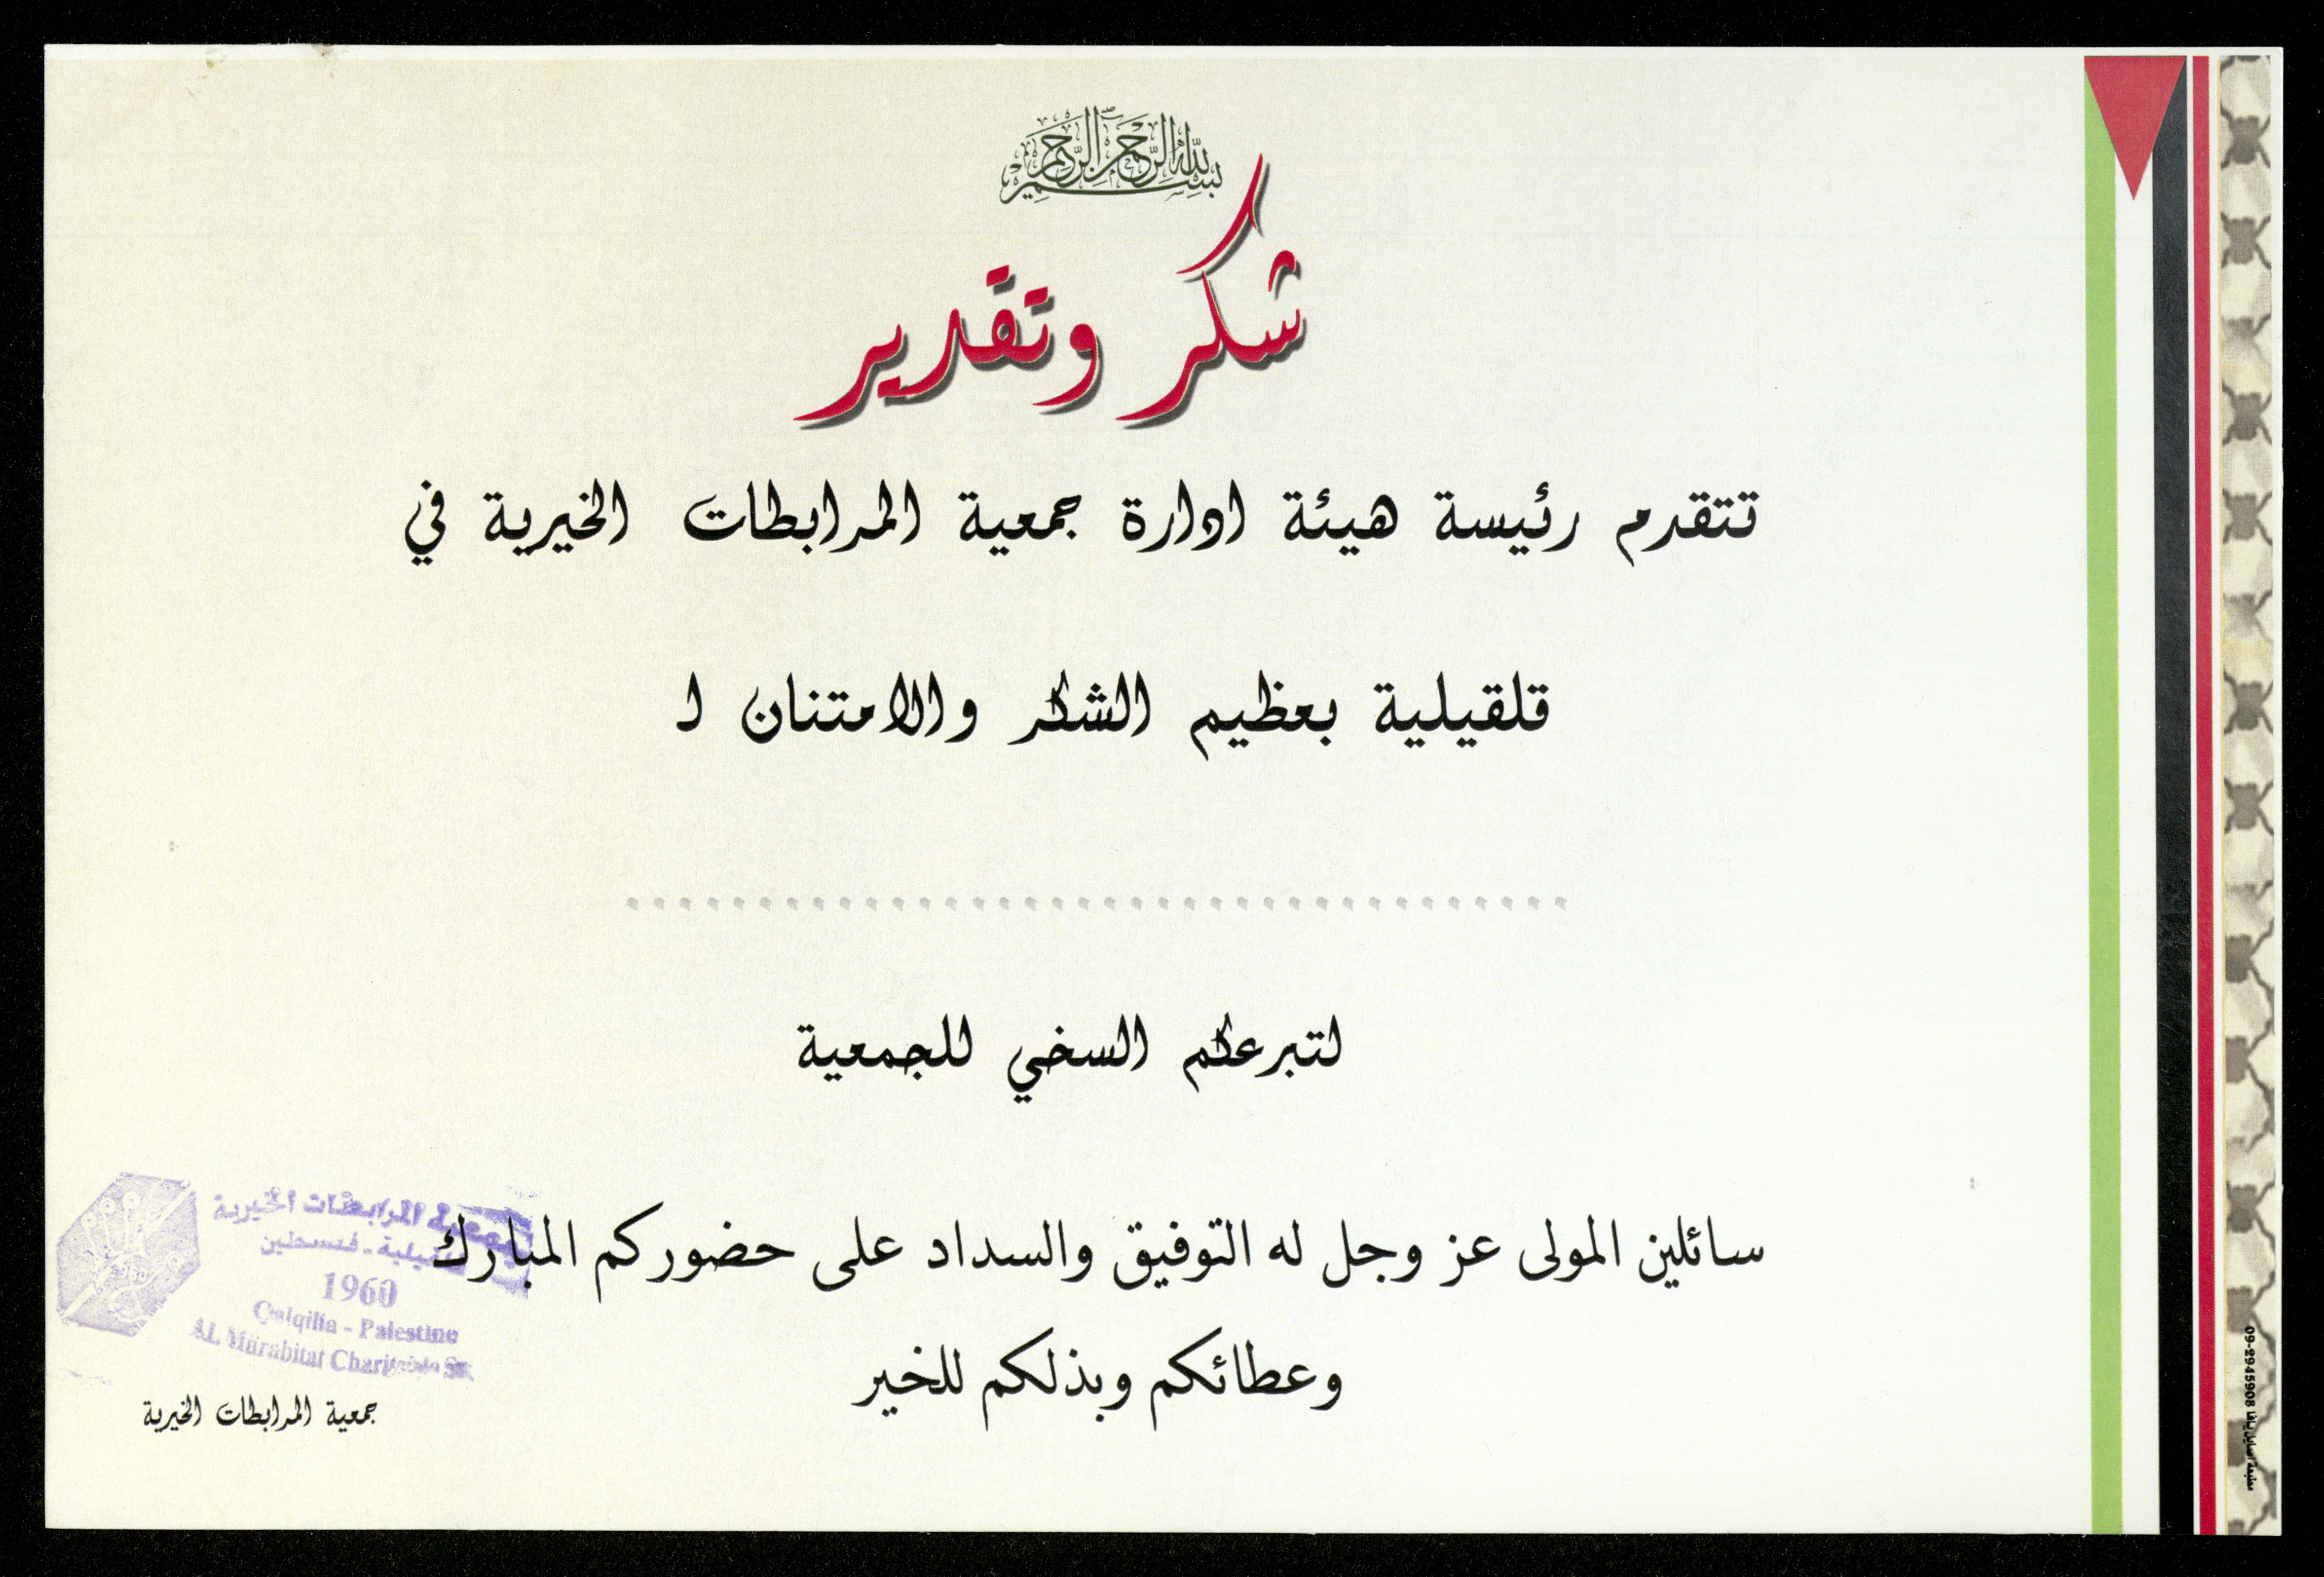 بسم الله الرحمن الرحيم
شكر وتقدير
تتقدم رئيسة هيئة ادارة جمعية المرابطات الخيرية في
قلقيلية بعظيم الشكر والامتنان ل
....................................
لتبرعكم السخي للجمعية
سائلين المولى عز وجل له التوفيق والسداد على حضوركم المبارك
وعطائكم وبذلكم للخير
جمعية المرابطات الخيرية
قلقيلية - فلسطين
1960
Qalqilia - Palestine
AL Murabitat Charitable
جمعية المرابطات الخيرية
09-2945908